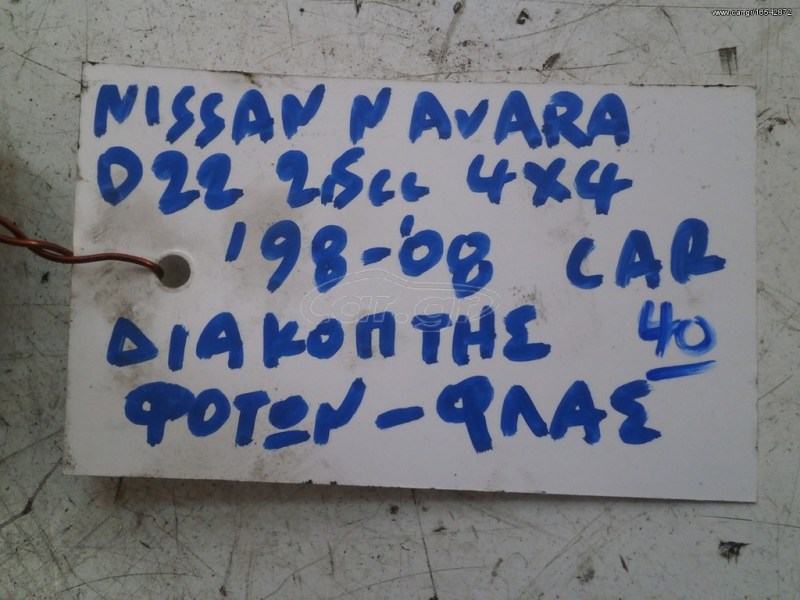 www.car.gr/16542872
NISSAN NAVARA
D22 2,5cc 4X4
'98-'08 CAR
ΔΙΑΚΟΠΤΗΣ 40
ΦΟΤΩΝ-ΦΛΑΣ
car.gr